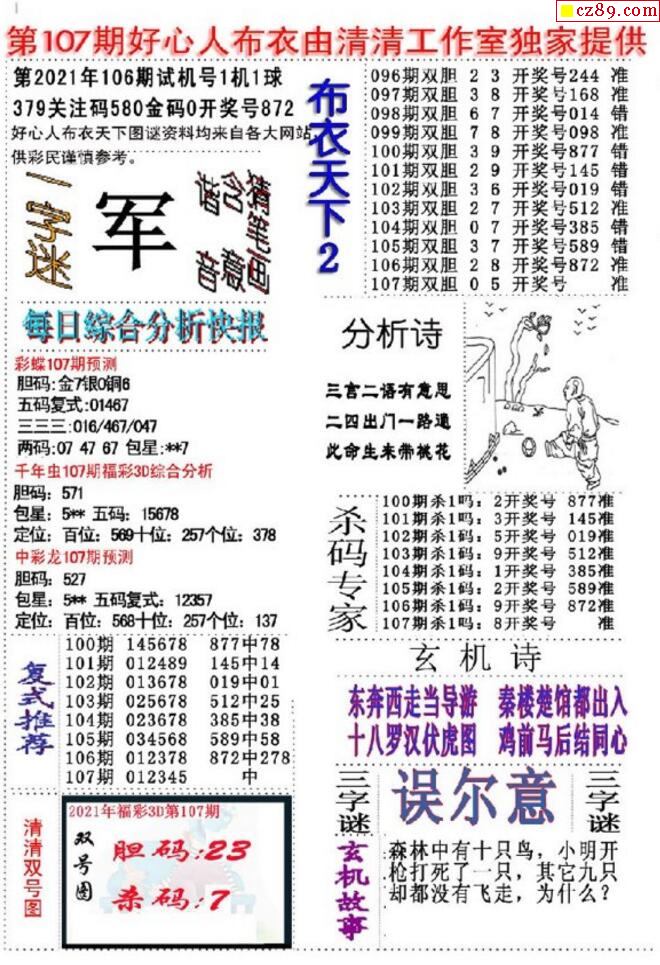 cz89.com
第107期好心人布衣由清清工作室独家提供
第2021年106期试机号1机1球
379关注码580金码0开奖号872
好心人布衣天下图谜资料均来自各大网站,
供彩民谨慎参考。
一字迷
军
猜笔画
含意
谐音
每日综合分析快报
彩蝶107期预测
胆码:金7银0铜6
五码复式:01467
三三三:016/467/047
两码:07 47 67 包星:**7
千年虫107期福彩3D综合分析
胆码: 571
包星: 5** 五码: 15678
定位: 百位: 569十位: 257个位: 378
中彩龙107期预测
胆码: 527
包星: 5** 五码复式: 12357
定位: 百位: 568十位: 257个位: 137
复式推荐
100期 145678 877中78
101期 012489 145中14
102期 013678 019中01
103期 025678 512中25
104期 023678 385中38
105期 034568 589中58
106期 012378 872中278
107期 012345 中
清清双号图
2021年福彩3D第107期
双号图
胆码:23
杀码:7
布衣天下2
096期双胆 2 3 开奖号244 准
097期双胆 3 8 开奖号168 准
098期双胆 6 7 开奖号014 错
099期双胆 7 8 开奖号098 准
100期双胆 3 9 开奖号877 错
101期双胆 2 9 开奖号145 错
102期双胆 3 6 开奖号019 错
103期双胆 2 7 开奖号512 准
104期双胆 0 7 开奖号385 错
105期双胆 3 7 开奖号589 错
106期双胆 2 8 开奖号872 准
107期双胆 0 5 开奖号 准
分析诗
三言二语有意思
二四出门一路遁
此命生来带桃花
杀码专家
100期杀1吗: 2开奖号 877准
101期杀1吗: 3开奖号 145准
102期杀1码: 5开奖号 019准
103期杀1码: 9开奖号 512准
104期杀1码: 1开奖号 385准
105期杀1码: 2开奖号 589准
106期杀1码: 9开奖号 872准
107期杀1码: 8开奖号 准
玄机诗
东奔西走当导游 秦楼楚馆都出入
十八罗汉伏虎图 鸡前马后结同心
三字谜
误尔意
三字谜
玄机故事
森林中有十只鸟,小明开
枪打死了一只,其它九只
却都没有飞走,为什么?